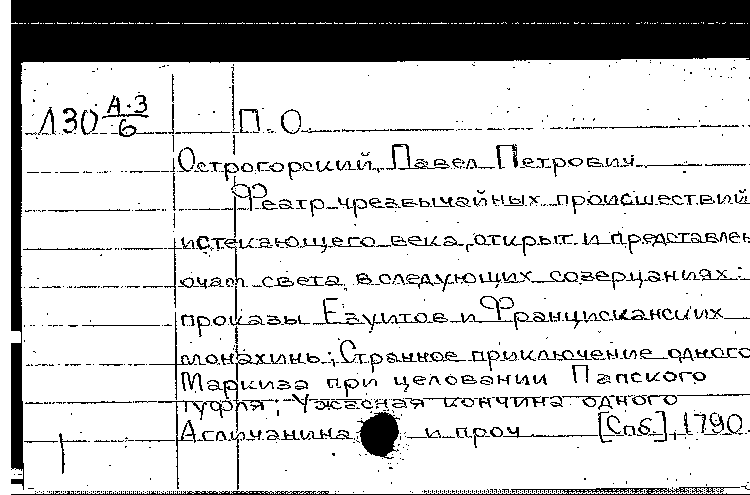 Л30 А.З/6 П.О.
Острогорский, Павел Петрович
Феатр чрезвычайных происшествий
истекающего века, открыт и представлен
очам света в следующих созерцаниях:
проказы Езуитов и Францисканских
монахинь; Странное приключение одного
Маркиза при целовании Папского
туфля; Ужасная кончина одного
Агличанина и проч [Спб.], 1790.